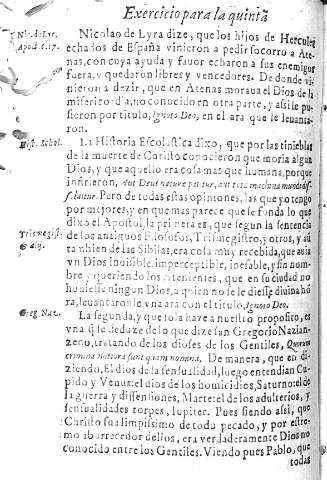 Exercicio para la quinta
Nic. de Lyr. Nicolao de Lyra dize, que los hijos de Hercules
Apost. 17. echados de España vinieron a pedir socorro a Ate-
nas, con cuya ayuda y fauor echaron a sus enemigos
fuera, y quedaron libres y vencedores. De donde vi-
nieron a dezir, que en Atenas moraua el Dios de la
misericordia, no conocido en otra parte, y assi le pu-
sieron por titulo, Ignoto Deo, en el ara que le leuanta-
ron.
Hist. Schol. La Historia Escolastica dixo, que por las tinieblas
de la muerte de Christo conocieron que moria algun
Dios, y que aquello era cosa mas que humana, porque
infirieron, aut Deus naturæ patitur, aut tota machina mundi dis-
soluitur. Pero de todas estas opiniones, las que yo tengo
por mejores, y en que mas parece que se funda lo que
dixo el Apostol, la primera es, que segun la sentencia
Trismegist. de los antiguos Filosofos, Trismegistro, y otros, y aũ
& alij. tambien de las Sibilas, era cosa muy recebida, que auia
vn Dios inuisible, imperceptible, inefable, y sin nom-
bre, y queriendo los Atenienses, que en su ciudad no
huuiesse ningun Dios, a quien no se le diesse diuina hõ
ra, leuantaronle vna ara con el titulo, Ignoto Deo.
Greg. Naz. La segunda, y que mas haze a nuestro proposito, es
vna, q̃ se deduze de lo que dize san Gregorio Nazian-
zeno, tratando de los dioses de los Gentiles, Quorum
crimina notiora sunt quam nomina. De manera, que en di-
ziendo, El dios de la sensualidad, luego entendian Cu-
pido y Venus: el dios de los homicidios, Saturno: el de
la guerra y dissensiones, Marte: el de los adulterios, y
sensualidades torpes, Iupiter. Pues siendo assi, que
Christo fua limpissimo de todo pecado, y por estre-
mo aborrecedor dellos, era verdaderamente Dios no
conocido entre los Gentiles. Viendo pues Pablo, que
todas